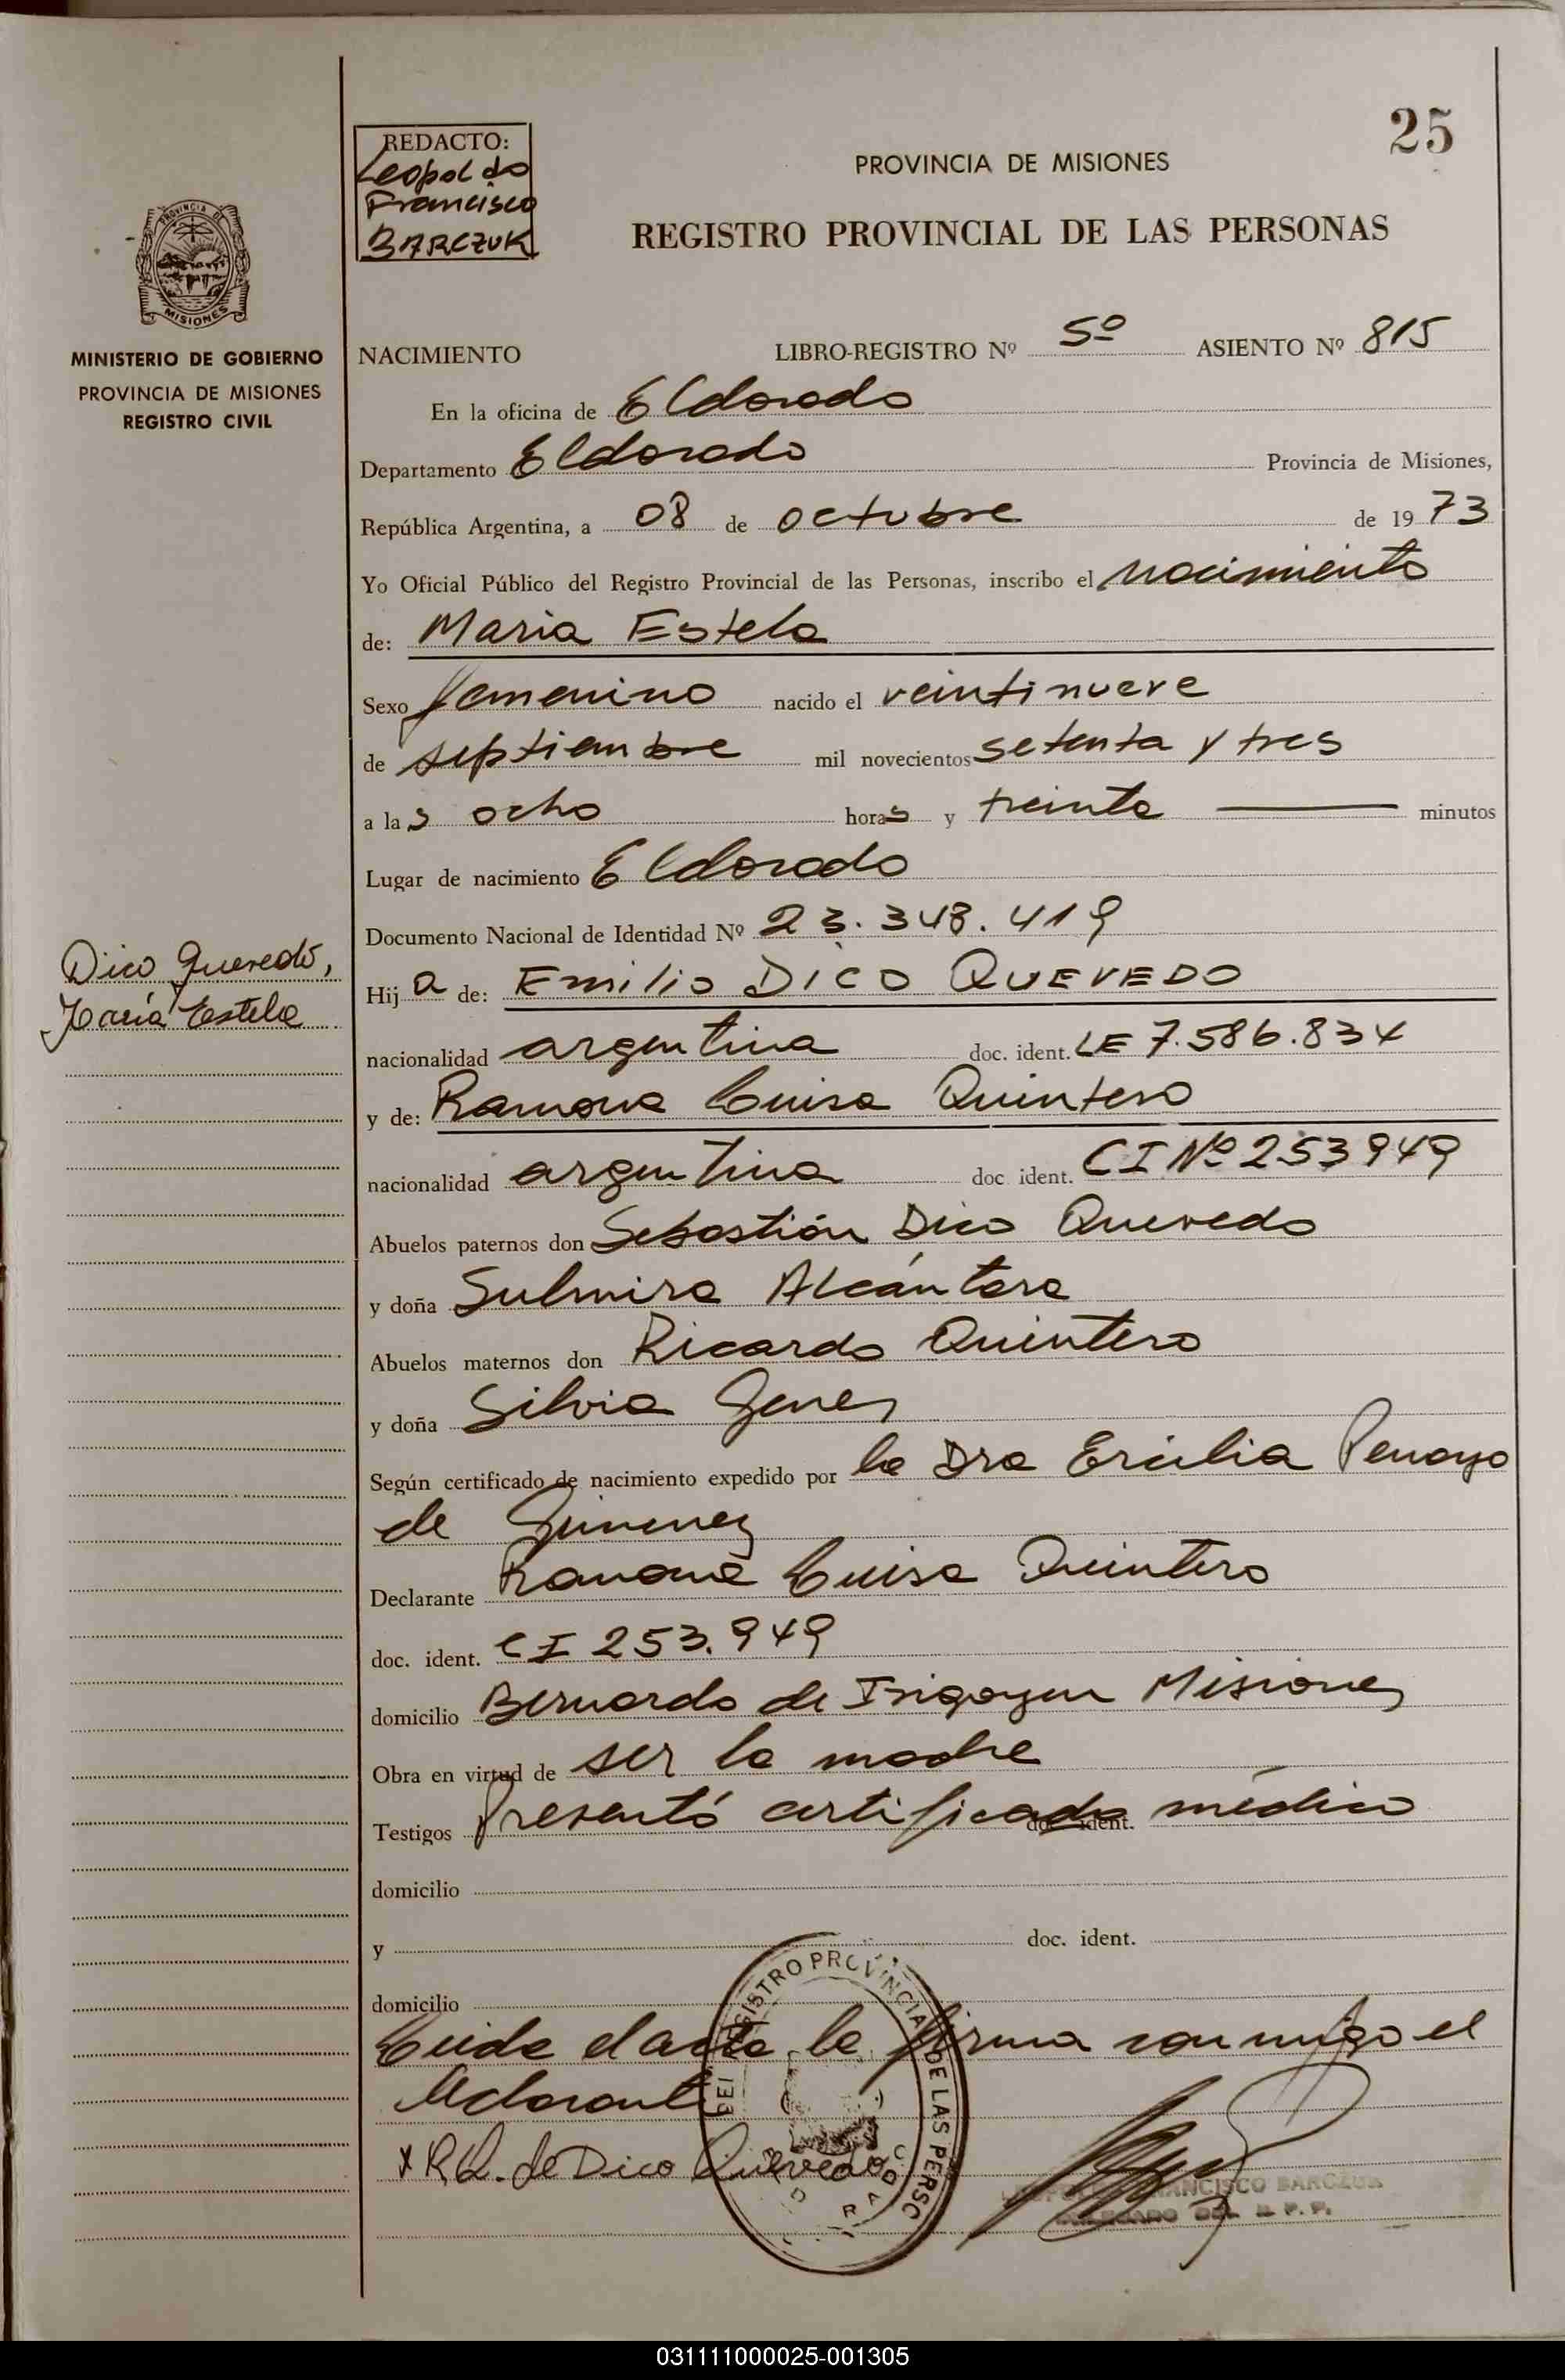 25
REDACTO:
Leopoldo
Francisco
BARCZUK
PROVINCIA DE MISIONES
REGISTRO PROVINCIAL DE LAS PERSONAS
PROVINCIA DE
MISIONES
MINISTERIO DE GOBIERNO
PROVINCIA DE MISIONES
REGISTRO CIVIL
NACIMIENTO LIBRO-REGISTRO Nº 5º ASIENTO Nº 815
En la oficina de Eldorado
Departamento Eldorado Provincia de Misiones,
República Argentina, a 08 de octubre de 1973
Yo Oficial Público del Registro Provincial de las Personas, inscribo el nacimiento
de: Maria Estela
Sexo femenino nacido el veintinueve
de septiembre mil novecientos setenta y tres
a las ocho horas y treinta minutos
Lugar de nacimiento Eldorado
Documento Nacional de Identidad Nº 23.348.419
Dico Quevedo,
María Estela
Hija de: Emilio DICO QUEVEDO
nacionalidad argentina doc. ident. LE 7.586.834
y de: Ramona Luisa Quintero
nacionalidad argentina doc ident. CI Nº 253949
Abuelos paternos don Sebastián Dico Quevedo
y doña Sulmira Alcántara
Abuelos maternos don Ricardo Quintero
y doña Silvia Genes
Según certificado de nacimiento expedido por la Dra Ercilia Penayo
de Gimenez
Declarante Ramona Luisa Quintero
doc. ident. CI 253.949
domicilio Bernardo de Irigoyen Misiones
Obra en virtud de ser la madre
Testigos Presentó certificado médico doc. ident.
domicilio
y doc. ident.
domicilio
Leida el acta la firma conmigo el
declarante
x R.Q. de Dico Quevedo
REGISTRO PROVINCIAL DE LAS PERSO
FRANCISCO BARCZUK
DELEGADO DEL R. P. P.
031111000025-001305